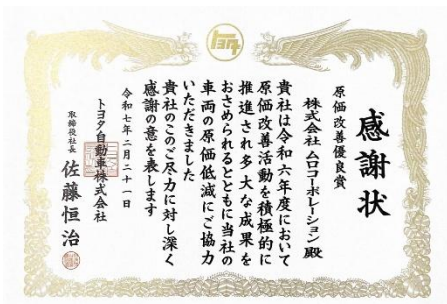 トヨタ
感謝状
原価改善優良賞
株式会社ムロコーポレーション殿
貴社は令和六年度において
原価改善活動を積極的に
推進され多大な成果を
おさめられるとともに当社の
車両の原価低減にご協力
いただきました
貴社のこのご尽力に対し深く
感謝の意を表します
令和七年二月二十一日
トヨタ自動車株式会社
取締役社長 佐藤恒治